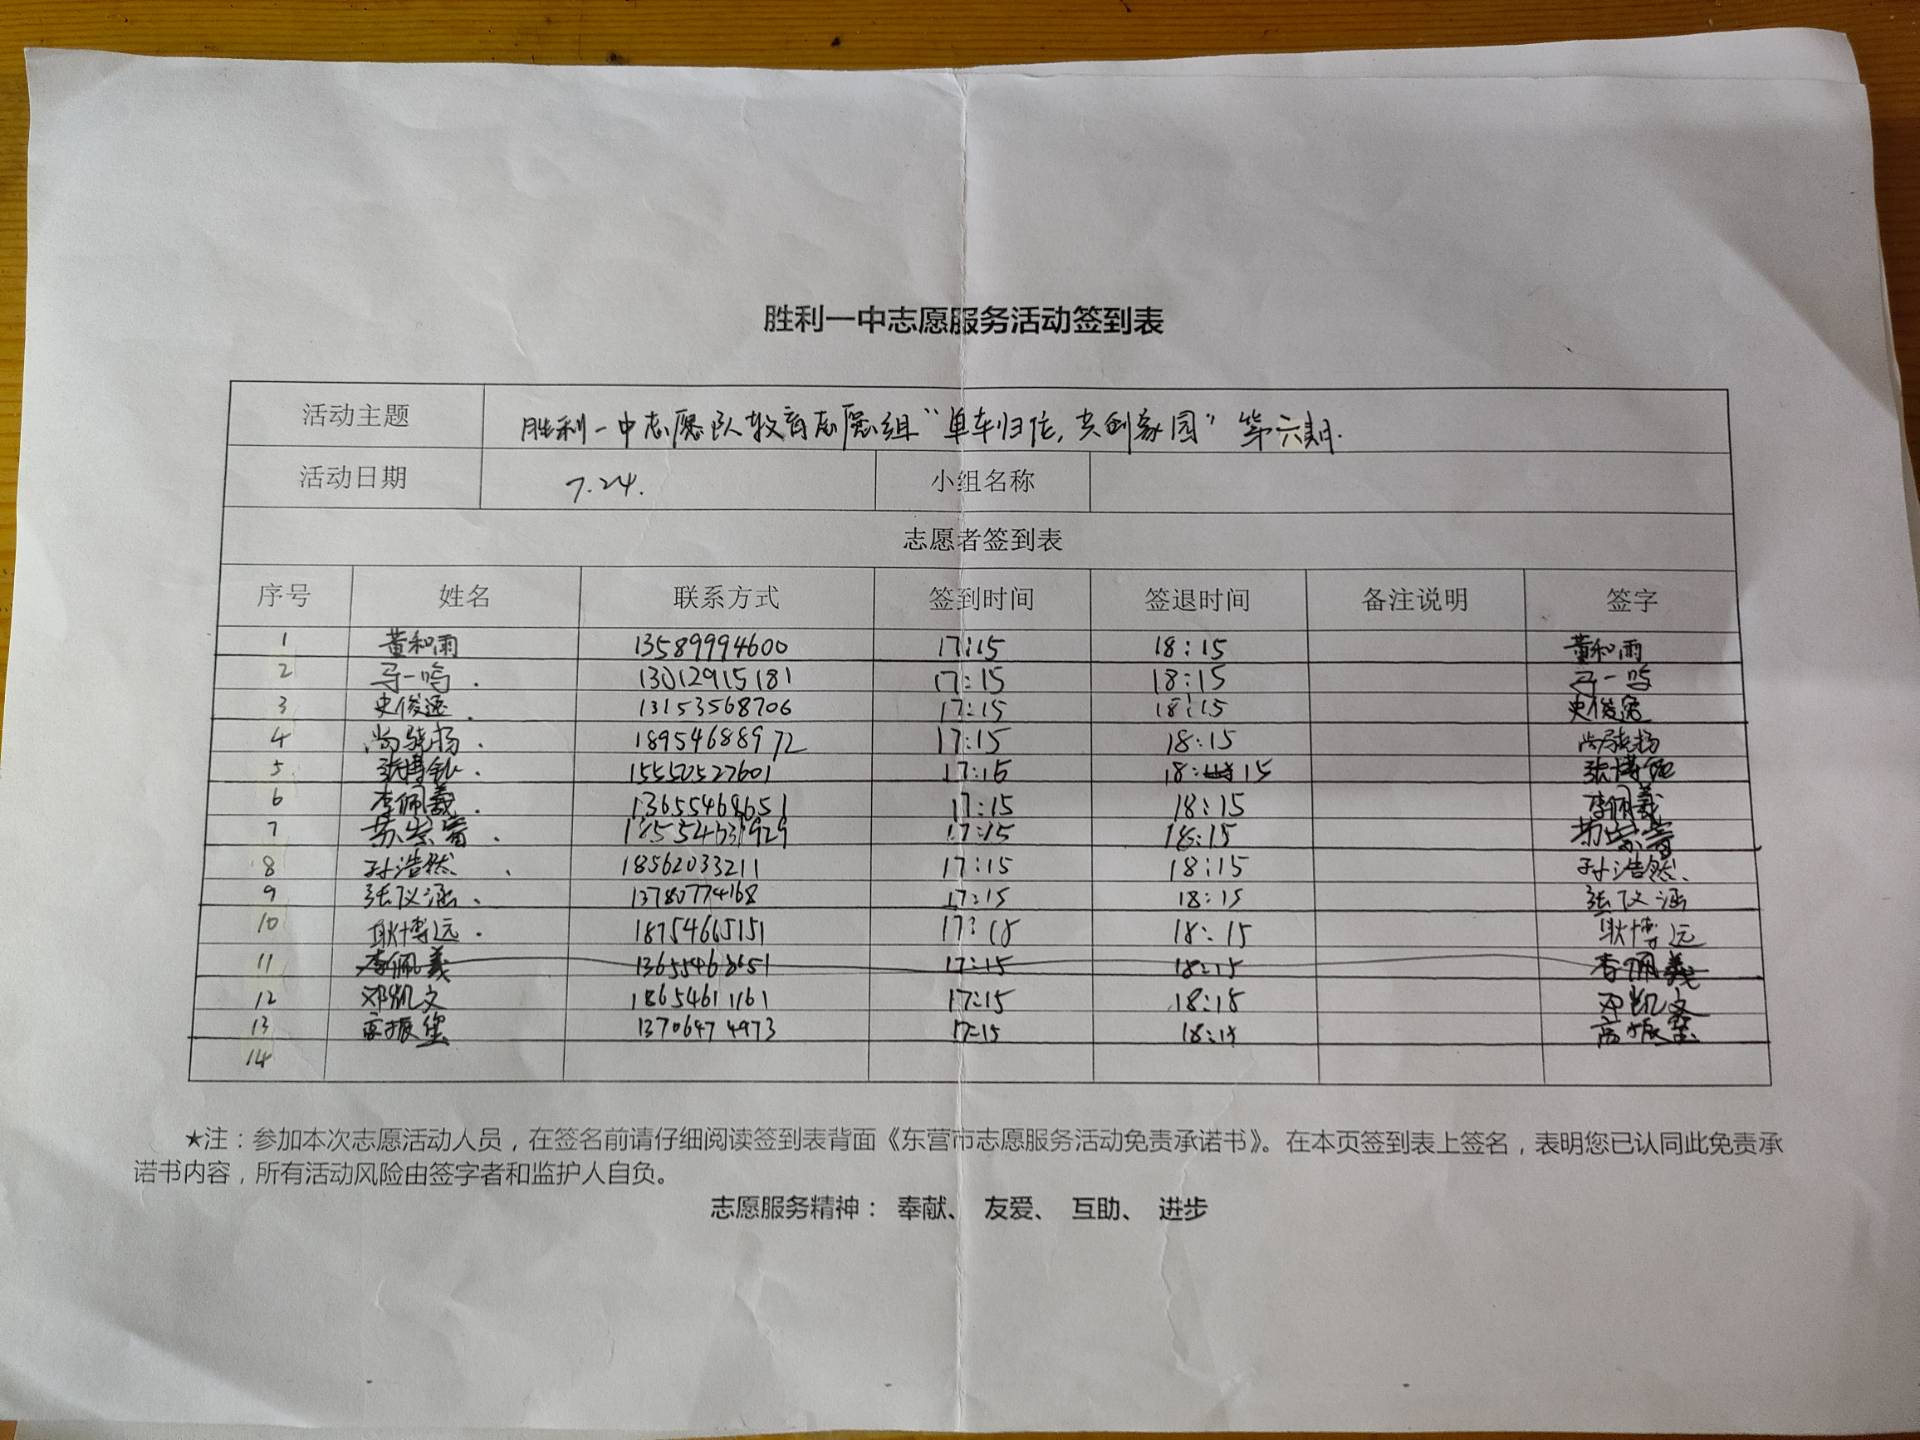 胜利一中志愿服务活动签到表
活动主题 胜利一中志愿队教育志愿组“单车归位,共创家园”第六期.
活动日期 7.24. 小组名称
志愿者签到表
序号 姓名 联系方式 签到时间 签退时间 备注说明 签字
1 董和雨 13589994600 17:15 18:15 董和雨
2 马一鸣. 13012915181 17:15 18:15 马一鸣
3 史俊逸. 13153568706 17:15 18:15 史俊逸
4 尚骁扬. 18954688972 17:15 18:15 尚骁扬
5 张博 15550527601 17:15 18:15 张博
6 李佩羲. 13655468651 17:15 18:15 李佩羲
7 苏崇 17:15 18:15 苏崇
8 孙浩然. 18562033211 17:15 18:15 孙浩然.
9 张议涵. 13780774168 17:15 18:15 张议涵
10 耿博远. 18754665151 17:15 18:15 耿博远
11 李佩羲 13655468651 17:15 18:15 李佩羲
12 邓凯文 18654611161 17:15 18:15 邓凯文
13 高振 13706474973 17:15 18:15 高振
14
★注：参加本次志愿活动人员，在签名前请仔细阅读签到表背面《东营市志愿服务活动免责承诺书》。在本页签到表上签名，表明您已认同此免责承
诺书内容，所有活动风险由签字者和监护人自负。
志愿服务精神： 奉献、 友爱、 互助、 进步